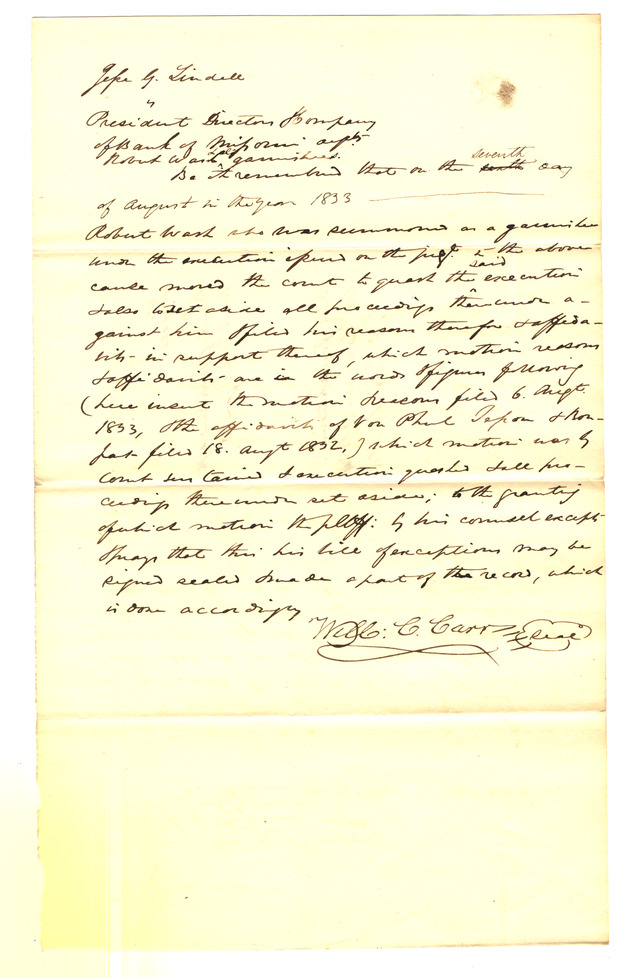 Jesse G. Lindell
vs
President Directors & Company
of Bank of Missouri
Robert Wash garnishee.
Be it remembered that on the seventh day
of August in the year 1833
Robert Wash who was summoned as a garnishee
under the execution issued on the judgt. in the above
cause moved the court to quash the said execution
& also to set aside all proceedings thereunder a-
gainst him & filed his reasons therefor & affida-
vits in support thereof, which motion reasons
& affidavits are in the words & figures following
(here insert the motion & reasons filed 6. Augt.
1833, & the affidavits of Von Phul &
filed 18. Augt 1832.) which motion was by
Court sustained & execution quashed & all pro-
ceedings thereunder set aside; to the granting
of which motion the pltff: by his counsel excepts
& prays that this his bill of exceptions may be
signed sealed & made a part of the record, which
is done accordingly
Will: C. Carr seal